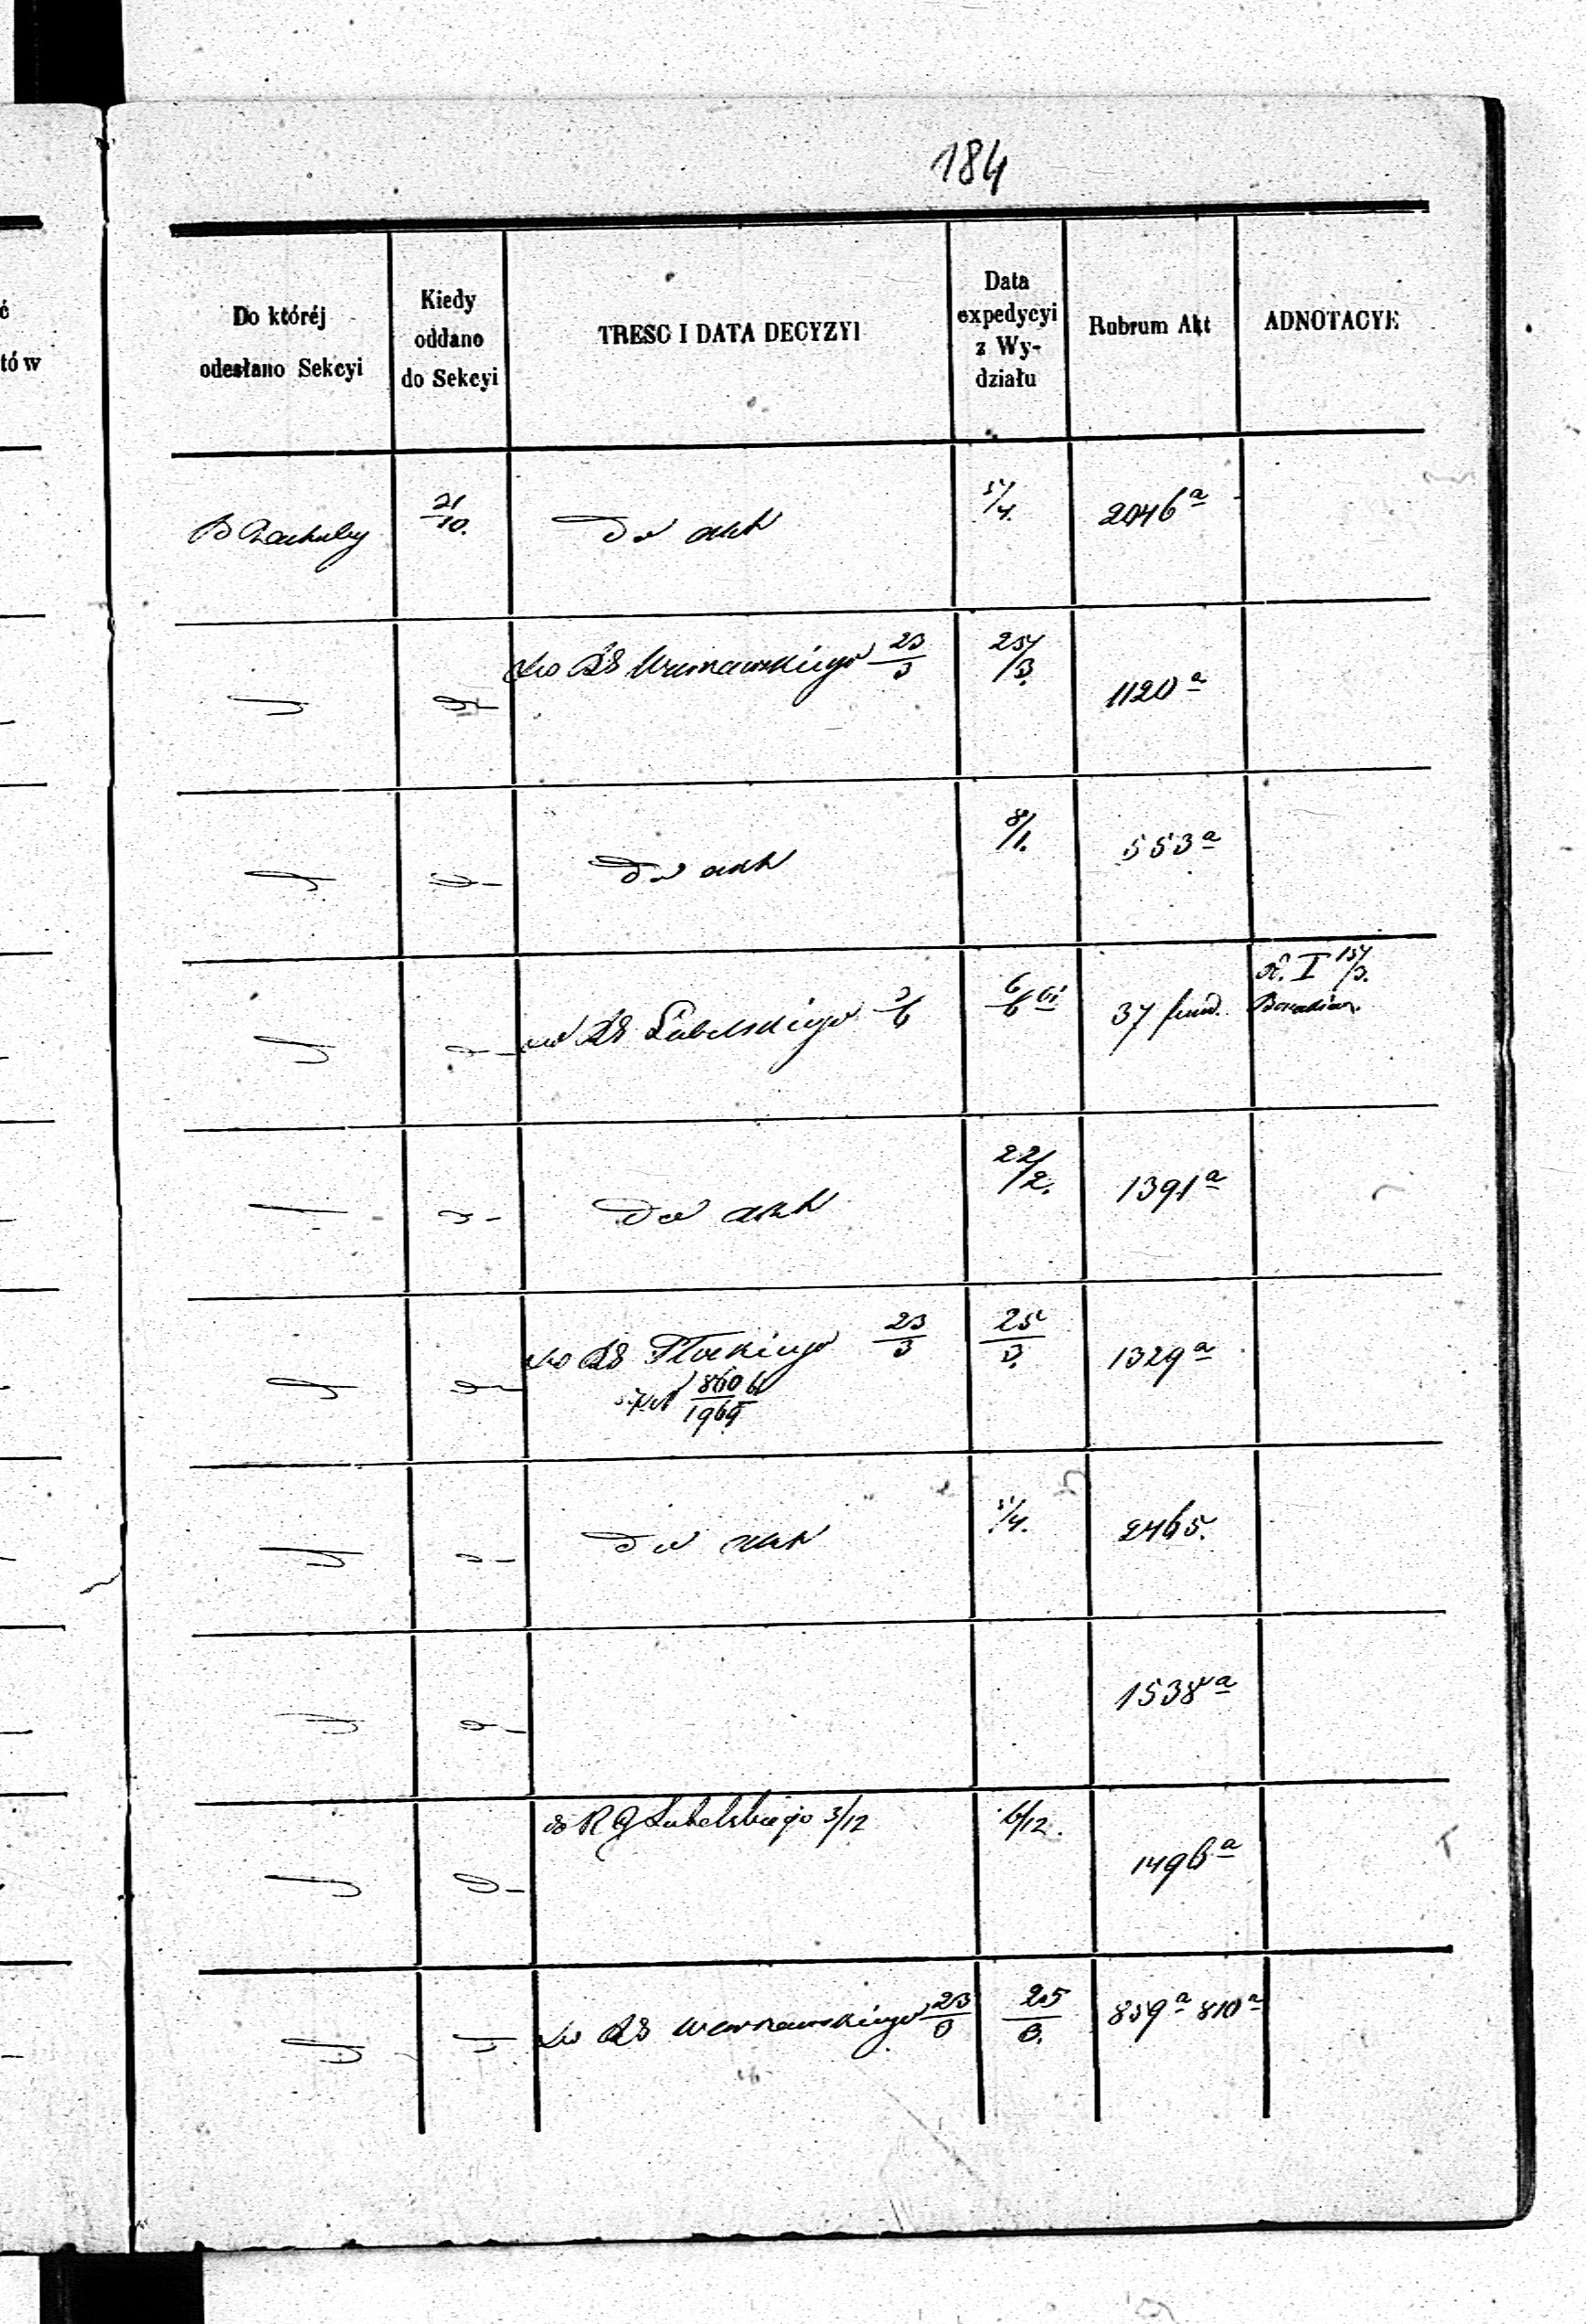 184
Do któréj odesłano Sekcyi
Kiedy oddano do Sekcyi
TRESC I DATA DECYZYI
Data expedycyi z Wydziału
Rubrum Akt
ADNOTACYE
21/10. Do akt 5/4. 2046a
do RG Warszawskiego 23/3 25/3. 1120a
Do akt 8/1. 553a
do RG Lubelskiego 3/6 6/6 37 fund. I 15/3.
Do akt 22/2. 1391a
do RG Płockiego 23/3 25/3. 1329a
860/1965
Do akt 5/4. 2465.
1538a
do RG Lubelskiego 3/12 6/12. 1496a
do RG Warszawskiego 23/3 25/3. 859a 810a